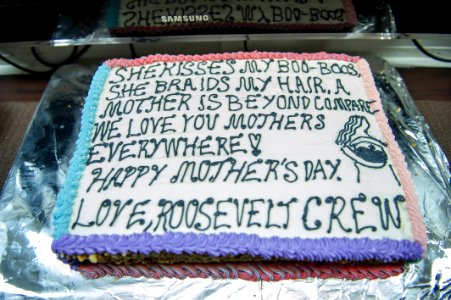 SAMSUNG
SHE KISSES MY BOO-BOOS,
SHE BRAIDS MY HAIR. A
MOTHER IS BEYOND COMPARE
WE LOVE YOU MOTHERS
EVERYWHERE!
HAPPY MOTHER'S DAY.
LOVE, ROOSEVELT CREW